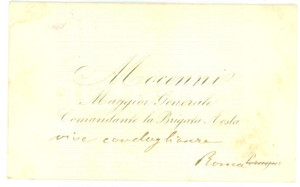 Mocenni
Maggior Generale
Comandante la Brigata Aosta
vive condoglianze
Roma